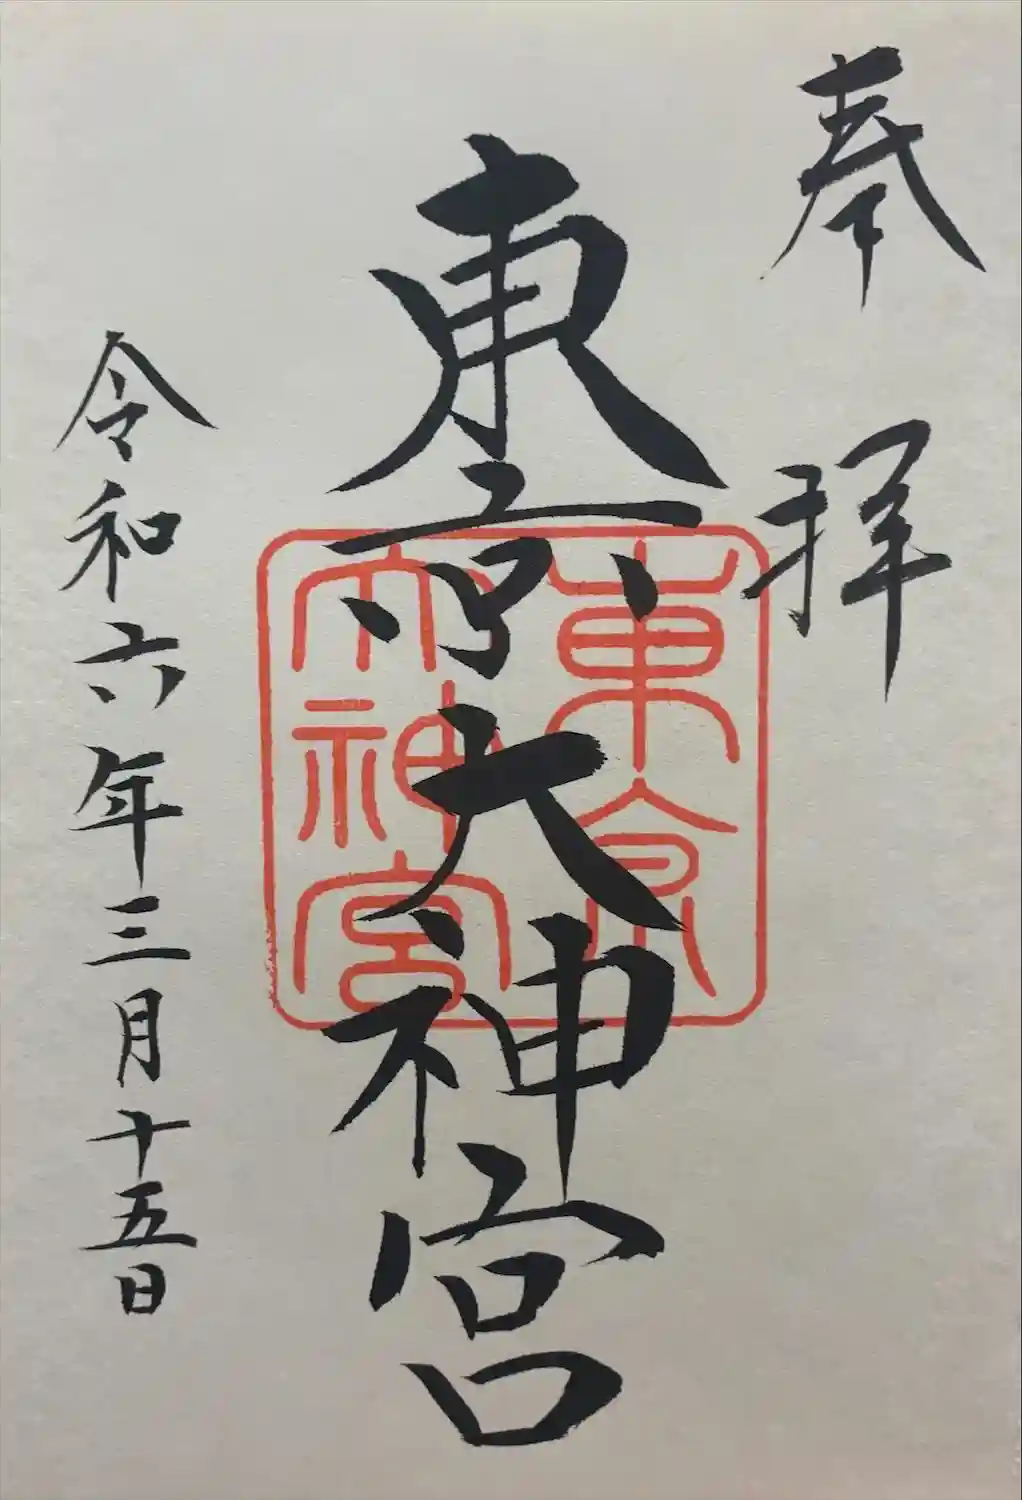 奉拝
東京大神宮
東京
大神宮
令和六年三月十五日